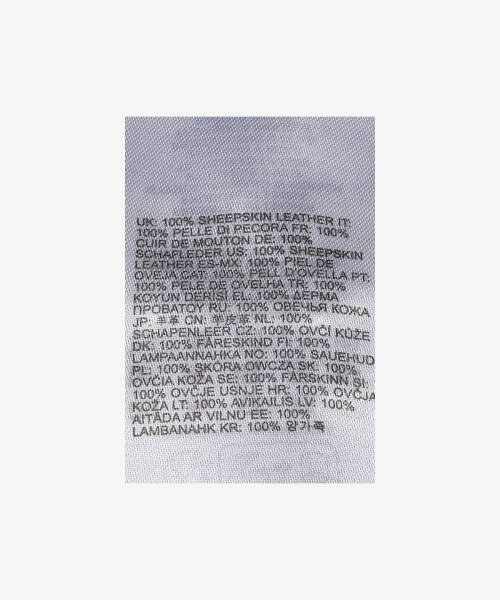 UK: 100% SHEEPSKIN LEATHER IT:
100% PELLE DI PECORA FR: 100%
CUIR DE MOUTON DE: 100%
SCHAFLEDER US: 100% SHEEPSKIN
LEATHER ES-MX: 100% PIEL DE
OVEJA CAT: 100% PELL D'OVELLA PT:
100% PELE DE OVELHA TR: 100%
KOYUN DERISI EL: 100% ΔΕΡΜΑ
ΠΡΟΒΑΤΟΥ RU: 100% ОВЕЧЬЯ КОЖА
JP: 羊革 CN: 羊皮革 NL: 100%
SCHAPENLEER CZ: 100% OVČÍ KŮŽE
DK: 100% FÅRESKIND FI: 100%
LAMPAANNAHKA NO: 100% SAUEHUD
PL: 100% SKÓRA OWCZA SK: 100%
OVČIA KOŽA SE: 100% FÅRSKINN SI:
100% OVČJE USNJE HR: 100% OVČJA
KOŽA LT: 100% AVIKAILIS LV: 100%
AITĀDA AR VILNU EE: 100%
LAMBANAHK KR: 100% 양가죽